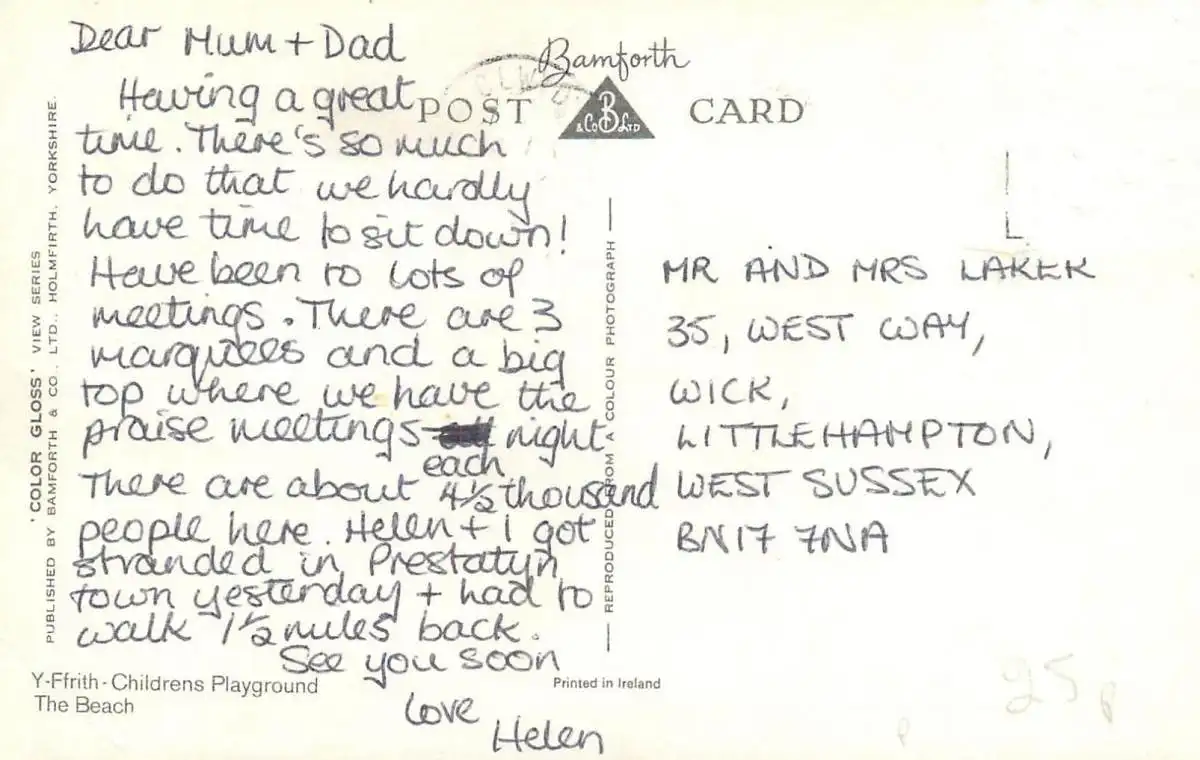 Dear Mum + Dad
Having a great
time. There's so much
to do that we hardly
have time to sit down!
Have been to lots of
meetings. There are 3
marquees and a big
top where we have the
praise meetings night
each
There are about 4½ thousand
people here. Helen + I got
stranded in Prestatyn
town yesterday + had to
walk 1½ miles back.
See you soon
Love
Helen
Bamforth
POST CARD
B
& Co LTD
MR AND MRS LAKEK
35, WEST WAY,
WICK,
LITTLEHAMPTON,
WEST SUSSEX
BN17 7NA
'COLOR GLOSS' VIEW SERIES
PUBLISHED BY BAMFORTH & CO., LTD., HOLMFIRTH, YORKSHIRE.
REPRODUCED FROM A COLOUR PHOTOGRAPH
Y-Ffrith - Childrens Playground
The Beach
Printed in Ireland
25p